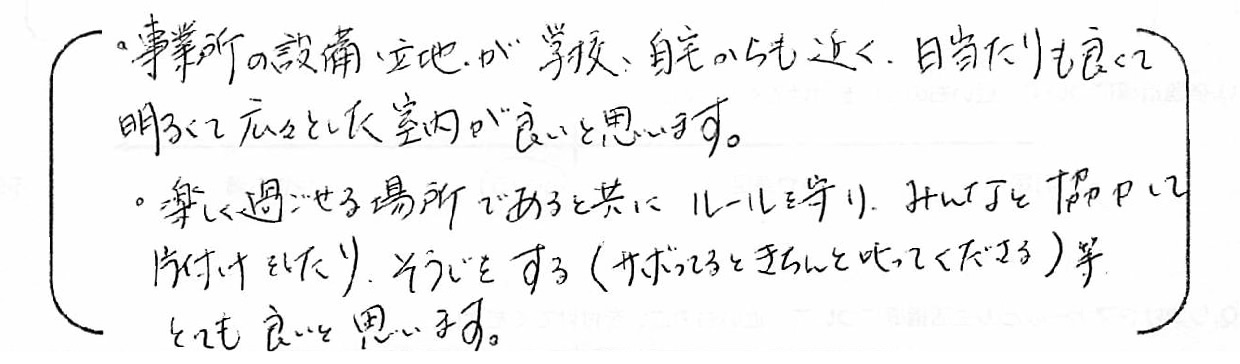 ・事業所の設備、立地が学校、自宅からも近く、日当たりも良くて
明るくて広々とした室内が良いと思います。
・楽しく過ごせる場所であると共にルールを守り、みんなと協力して
片付けをしたり、そうじをする（サボってるときちんと叱ってくださる）等
とても良いと思います。